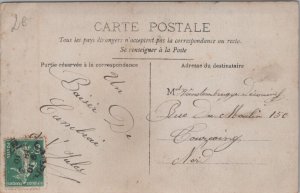 2e
CARTE POSTALE
Tous les pays étrangers n'acceptent pas la correspondance au recto.
Se renseigner à la Poste
Partie réservée à la correspondance
Adresse du destinataire
Un
Baiser De
Cambrai
Rue du Moulin 150
Tourcoing
Nord